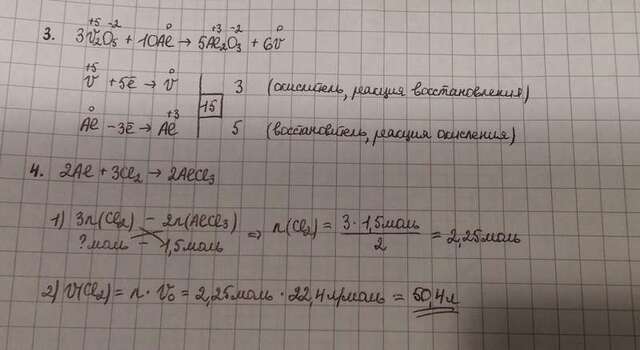 +5 -2 0 +3 -2 0
3. 3V₂O₅ + 10Al → 5Al₂O₃ + 6V
+5 0
V + 5ē → V | 3 (окислитель, реакция восстановления)
15
0 +3
Al - 3ē → Al | 5 (восстановитель, реакция окисления)
4. 2Al + 3Cl₂ → 2AlCl₃
1) 3n(Cl₂) – 2n(AlCl₃) ⇒ n(Cl₂) = 3 · 1,5моль / 2 = 2,25моль
?моль – 1,5моль
2) V(Cl₂) = n · V₀ = 2,25моль · 22,4л/моль = 50,4л